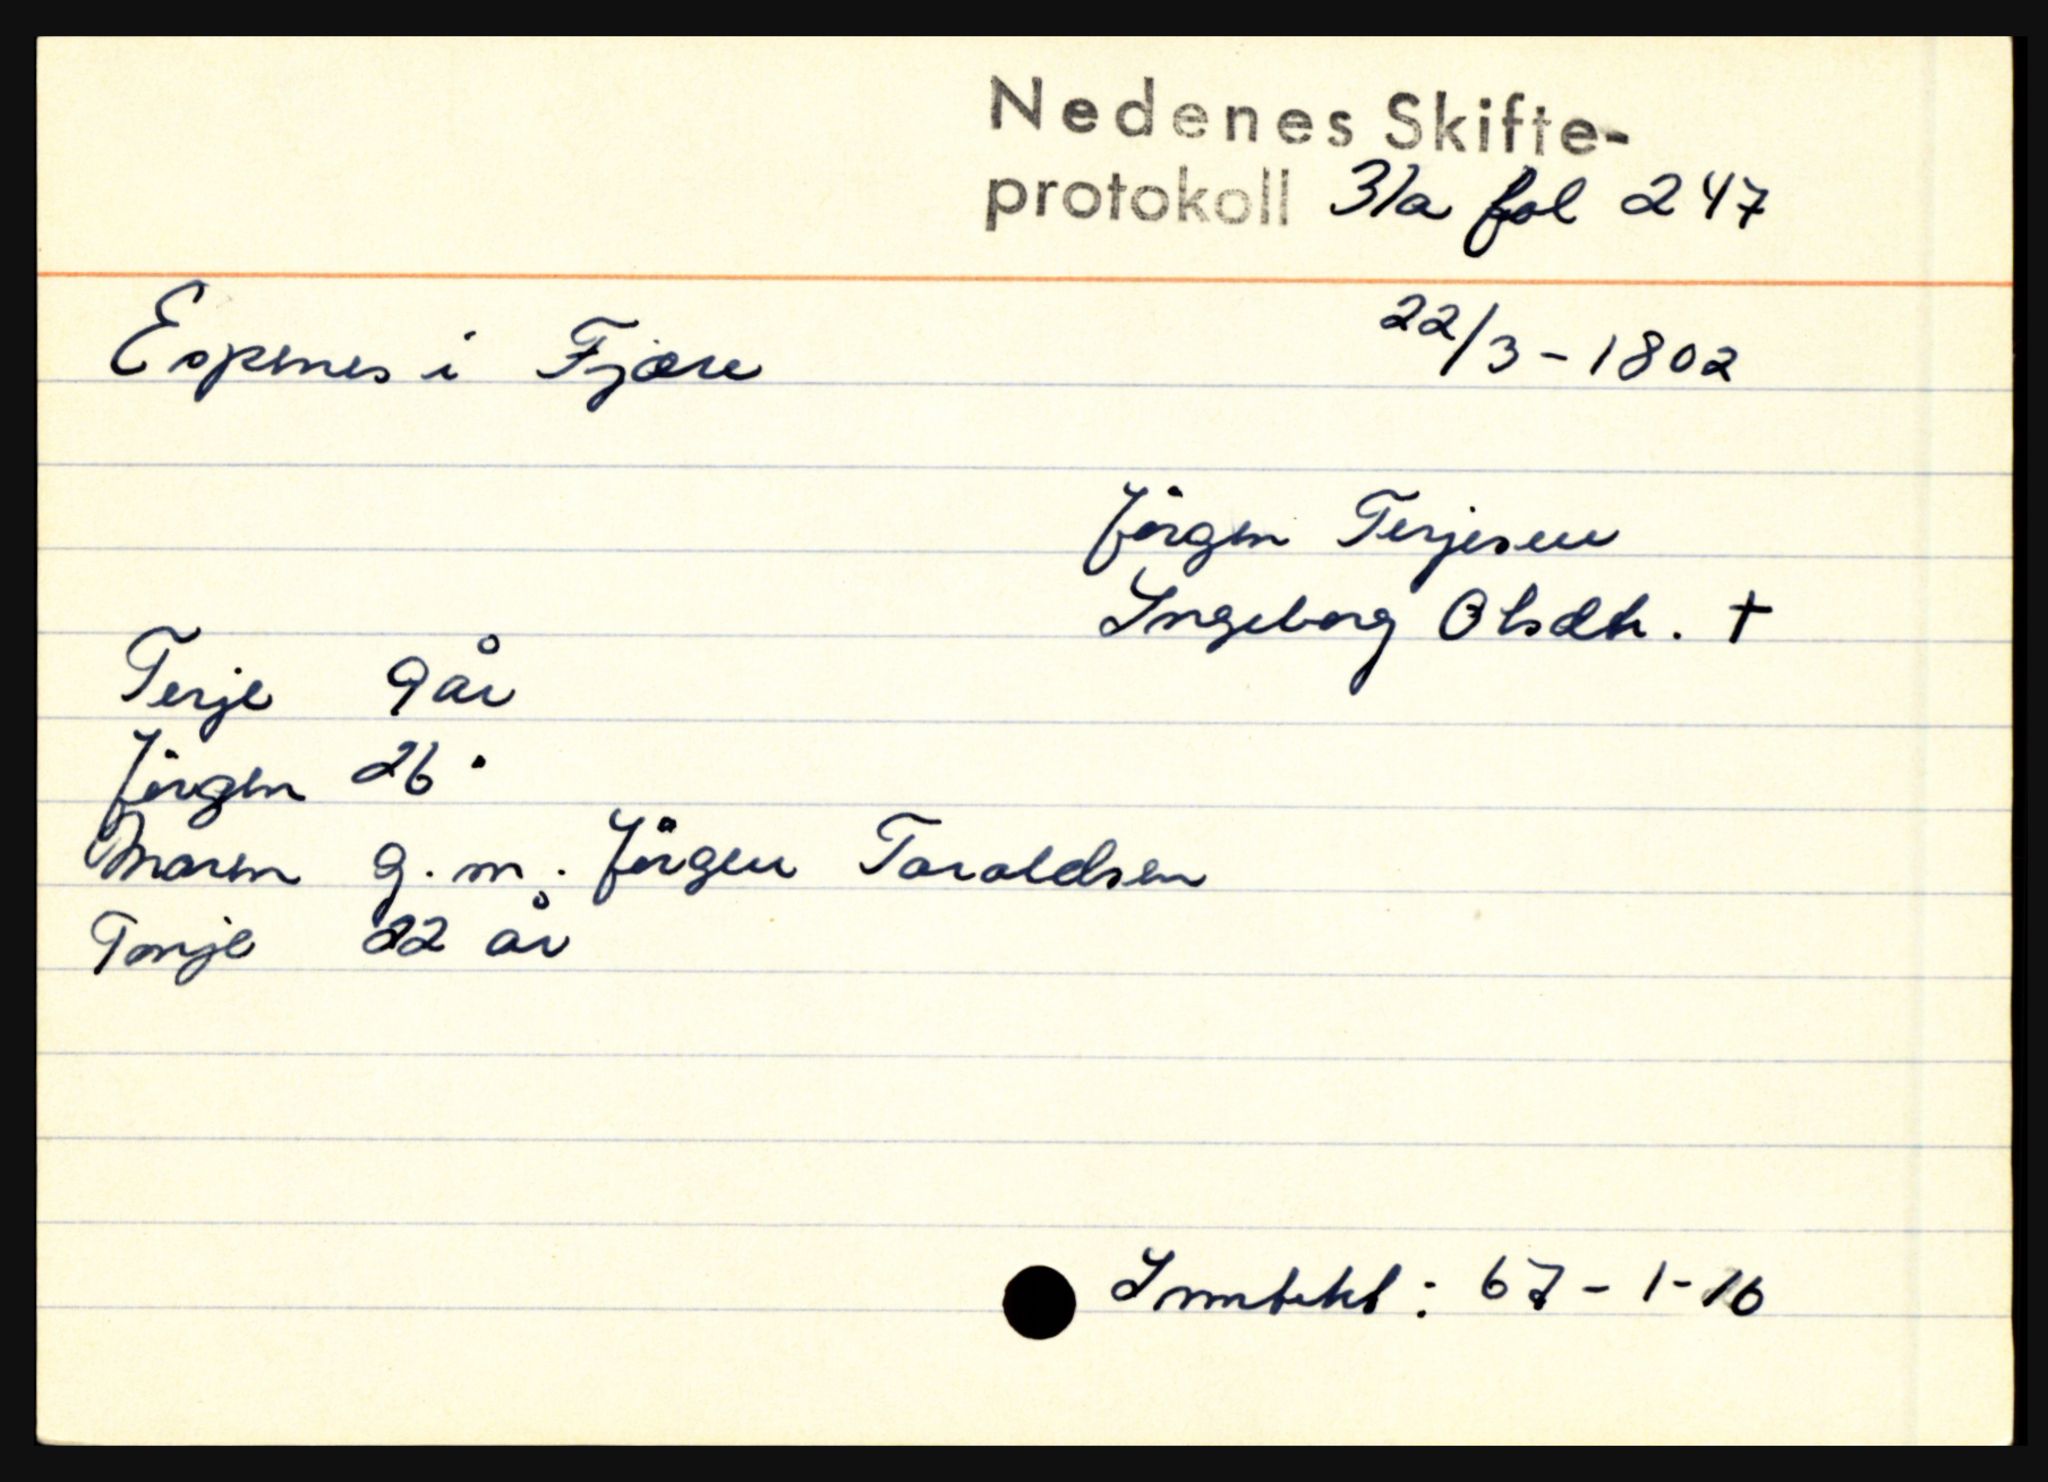 Nedenes Skifte-
protokoll 31a fol 247
Espenes i Fjære 22/3-1802
Jörgen Terjesen
Ingeborg Olsdtr. †
Terje 9 år
Jörgen 26 "
Maren g.m. Jörgen Taraldsen
Tonje 22 år
Inntekt: 67-1-16